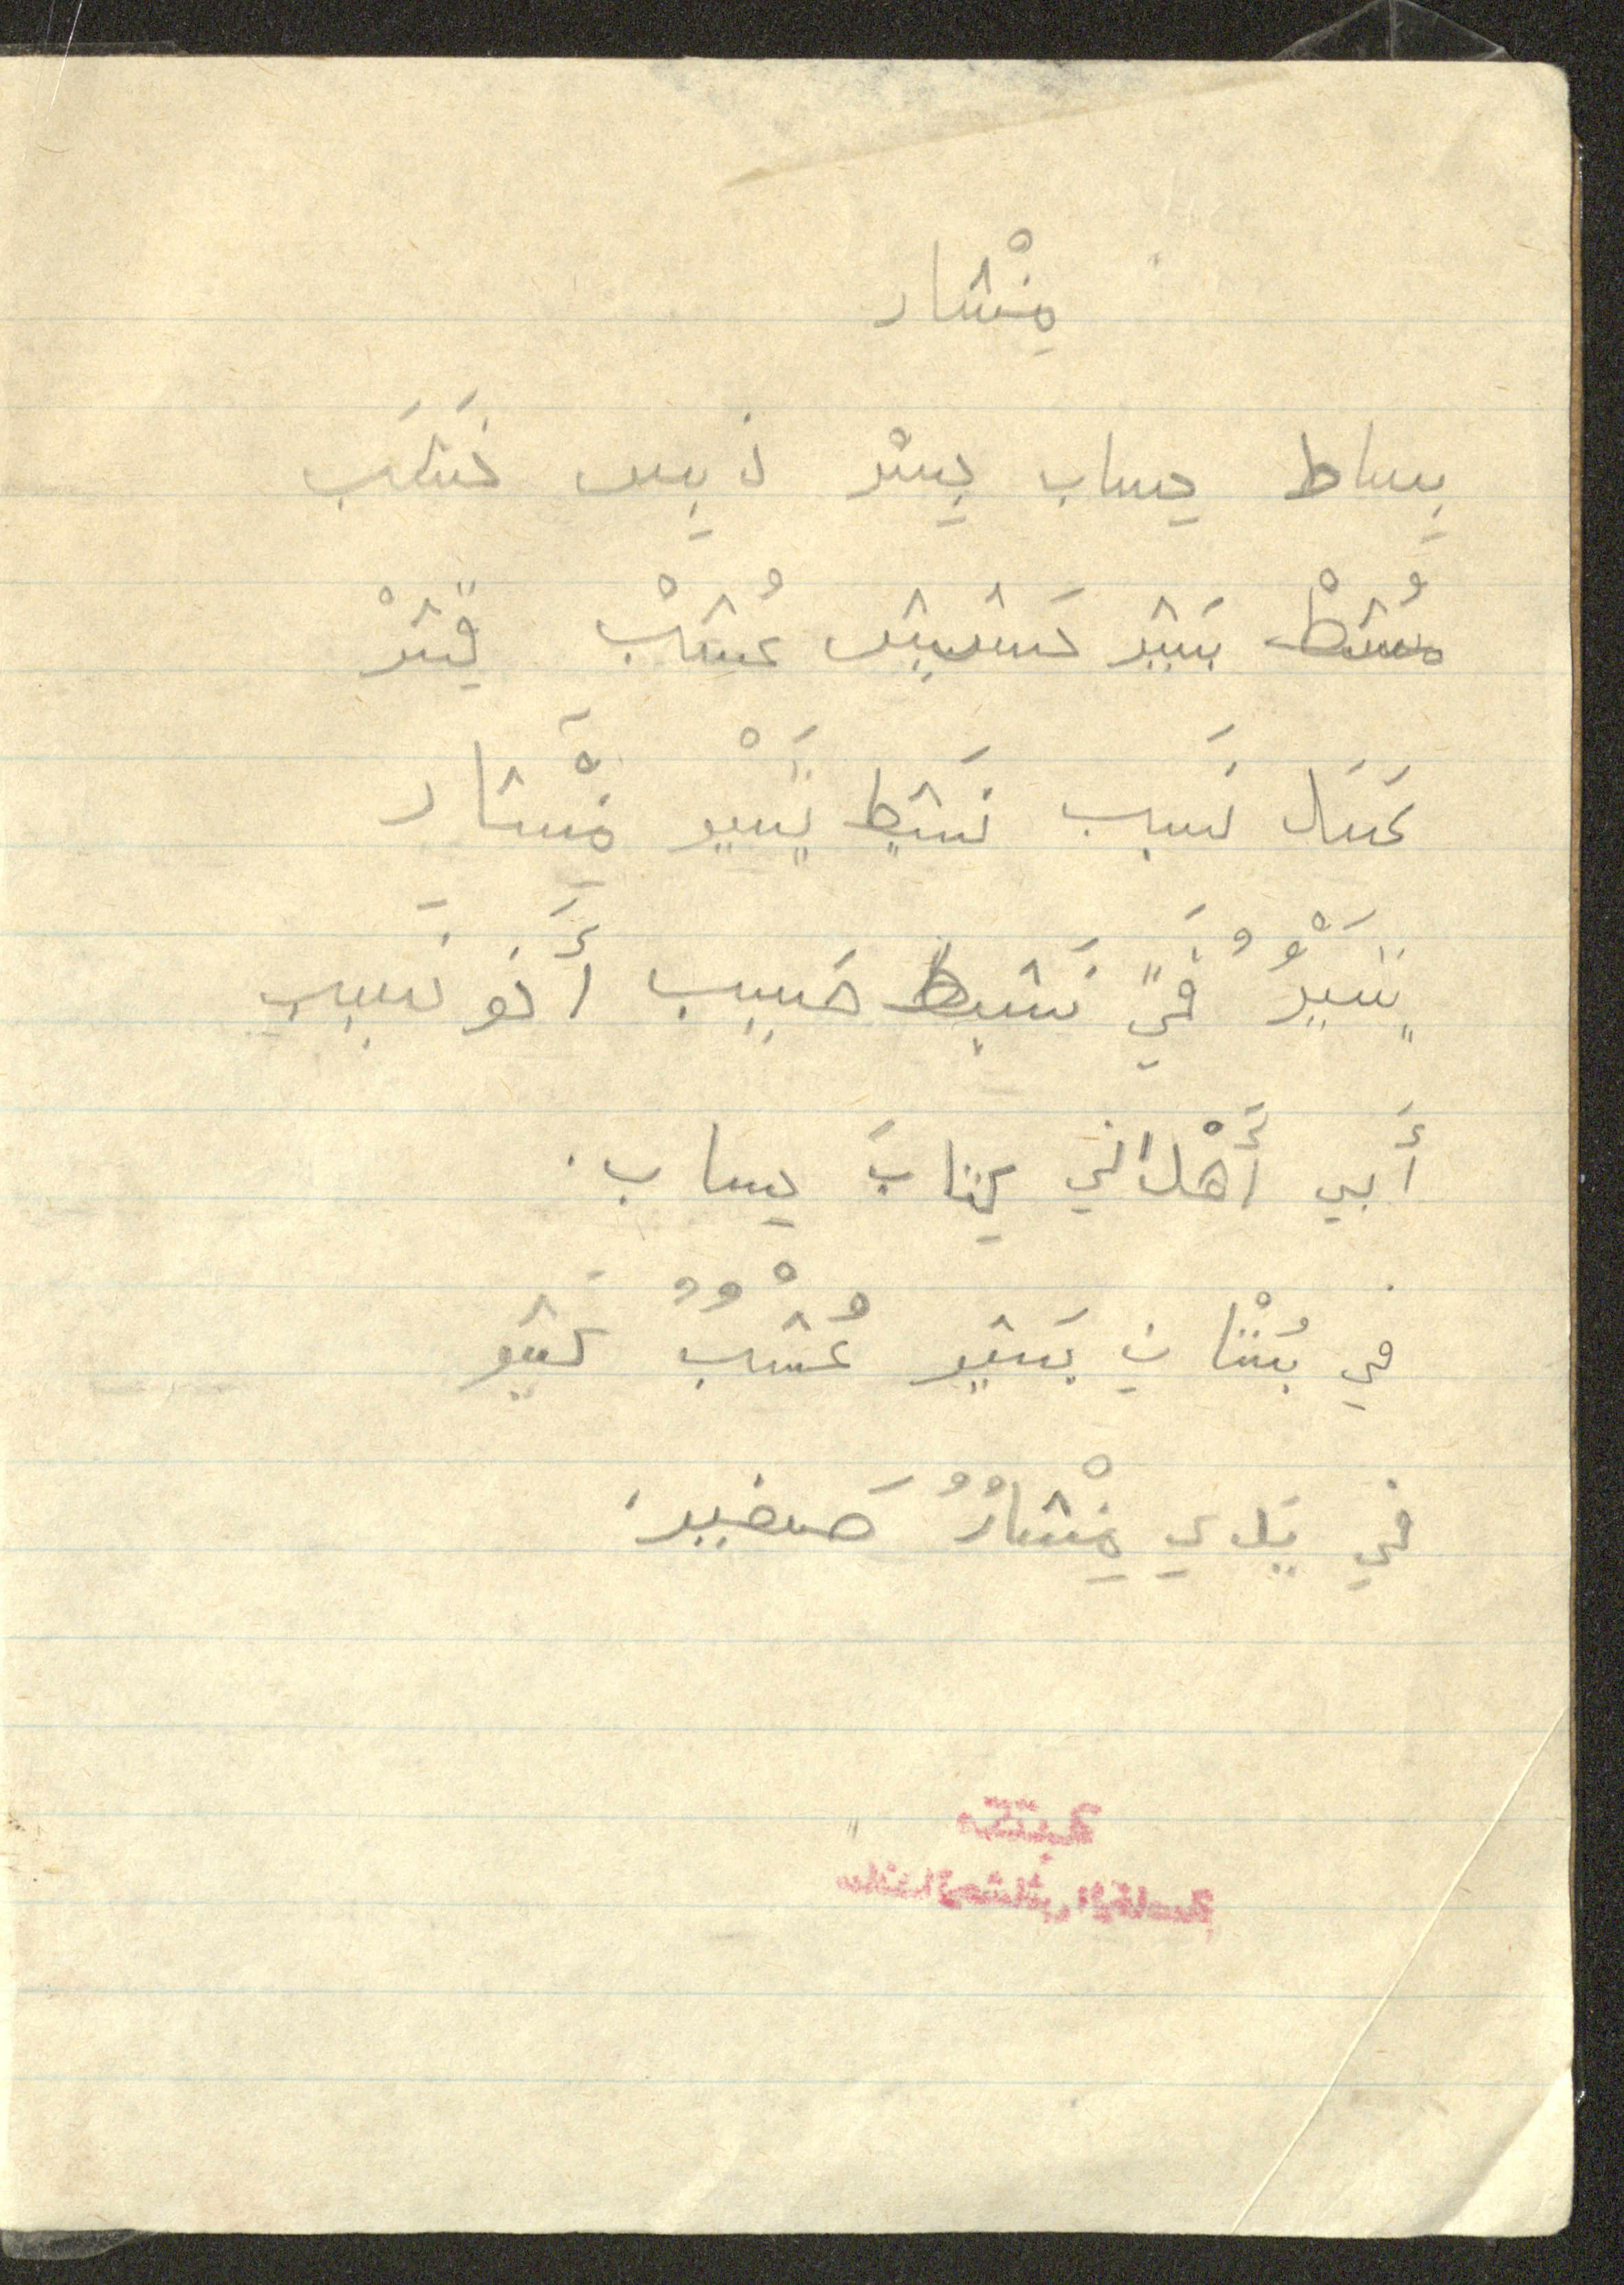 مِنْشار
بِساط حِساب جِسْر ذِيب خَشَب
مُشْطْ بَشِير حَشِيش عُشْبْ قِشرْ
عَسَل نَسِيب نَشِيط بَشِيْر مِنْشار
بَشِيْرٌ فَتًي نَشِيط حَبِيب أَخو نَسِيب
أَبي أَهْداني كِتابَ حِساب.
في بُسْتانِ بَشِير عُشْبٌ كَثِير
في يَدِي مِنْشارٌ صَغير.
مكتبة